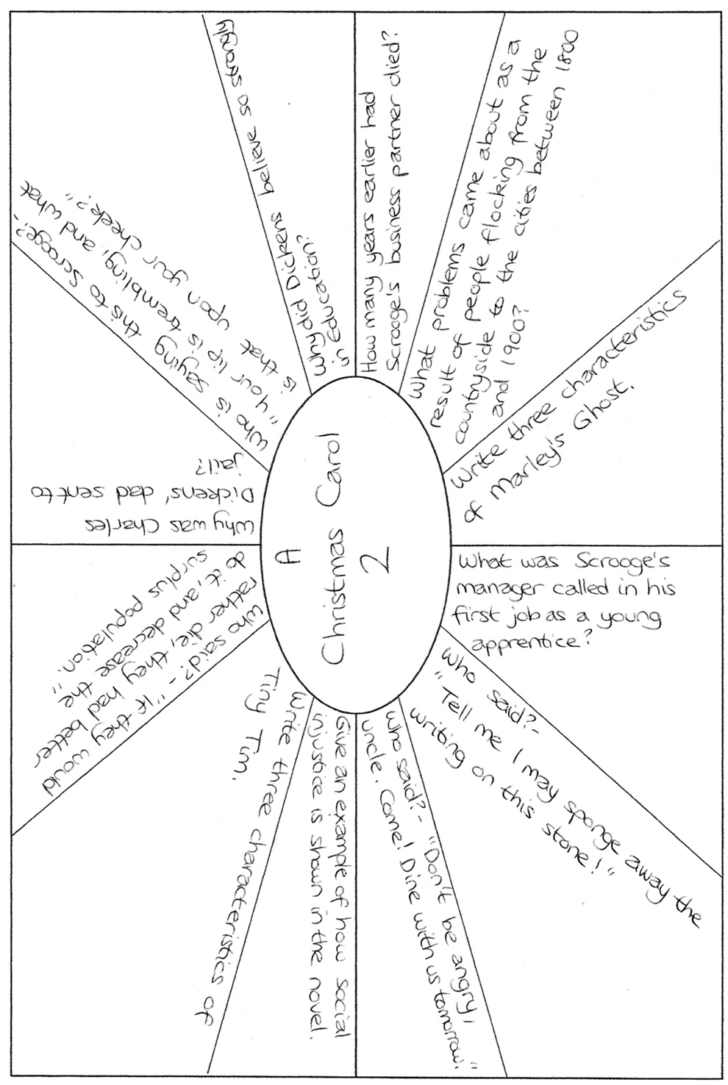 A
Christmas Carol
2
How many years earlier had
Scrooge's business partner died?
What problems came about as a
result of people flocking from the
countryside to the cities between 1800
and 1900?
Write three characteristics
of Marley's Ghost.
What was Scrooge's
manager called in his
first job as a young
apprentice?
Who said?-
"Tell me I may sponge away the
writing on this stone!"
Who said?- "Don't be angry,
uncle. Come! Dine with us tomorrow."
Give an example of how social
injustice is shown in the novel.
Write three characteristics of
Tiny Tim.
Who said?- "If they would
rather die, they had better
do it, and decrease the
surplus population."
Why was Charles
Dickens' dad sent to
jail?
Who is saying this to Scrooge?-
"Your lip is trembling, and what
is that upon your cheek?"
Why did Dickens believe so strongly
in education?